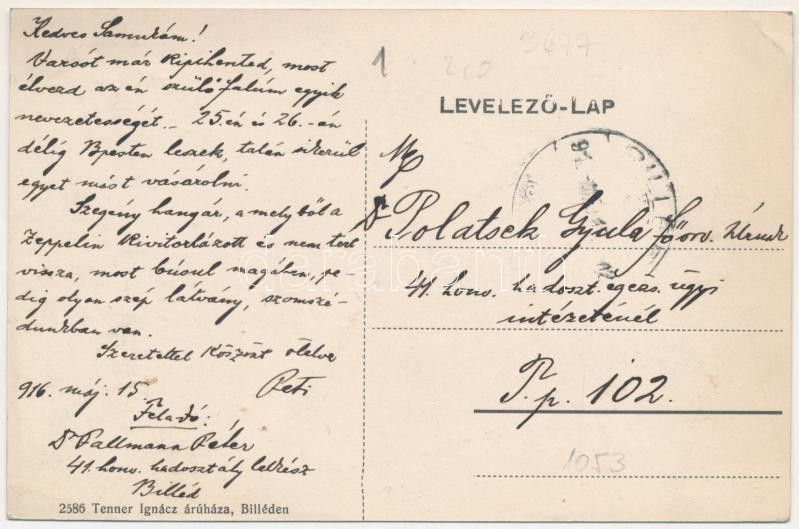 Kedves Samukám!
Varsót már kipihented, most
élvezd az én szülőfalúm egyik
nevezetességét. 25.én és 26.-án
délig Bpesten leszek, talán sikerül
egyet mást vásárolni.
Szegény hangár, a melyből a
Zeppelin kivitorlázott és nem tért
vissza, most búsul magában, pe-
dig olyan szép látvány, szomszé-
dunkban van.
Szeretettel köszönt ölelve
Peti
916. máj. 15.
Feladó:
Dr Pallmann Péter
41. honv. hadosztály lelkész
Billéd
2586 Tenner Ignácz árúháza, Billéden
1
210
3677
LEVELEZŐ-LAP
Dr Polatsek Gyula főorv. Úrnak
41. honv. hadoszt. egész. ügyi
intézeténél
T. p. 102.
1053
darabanth.com